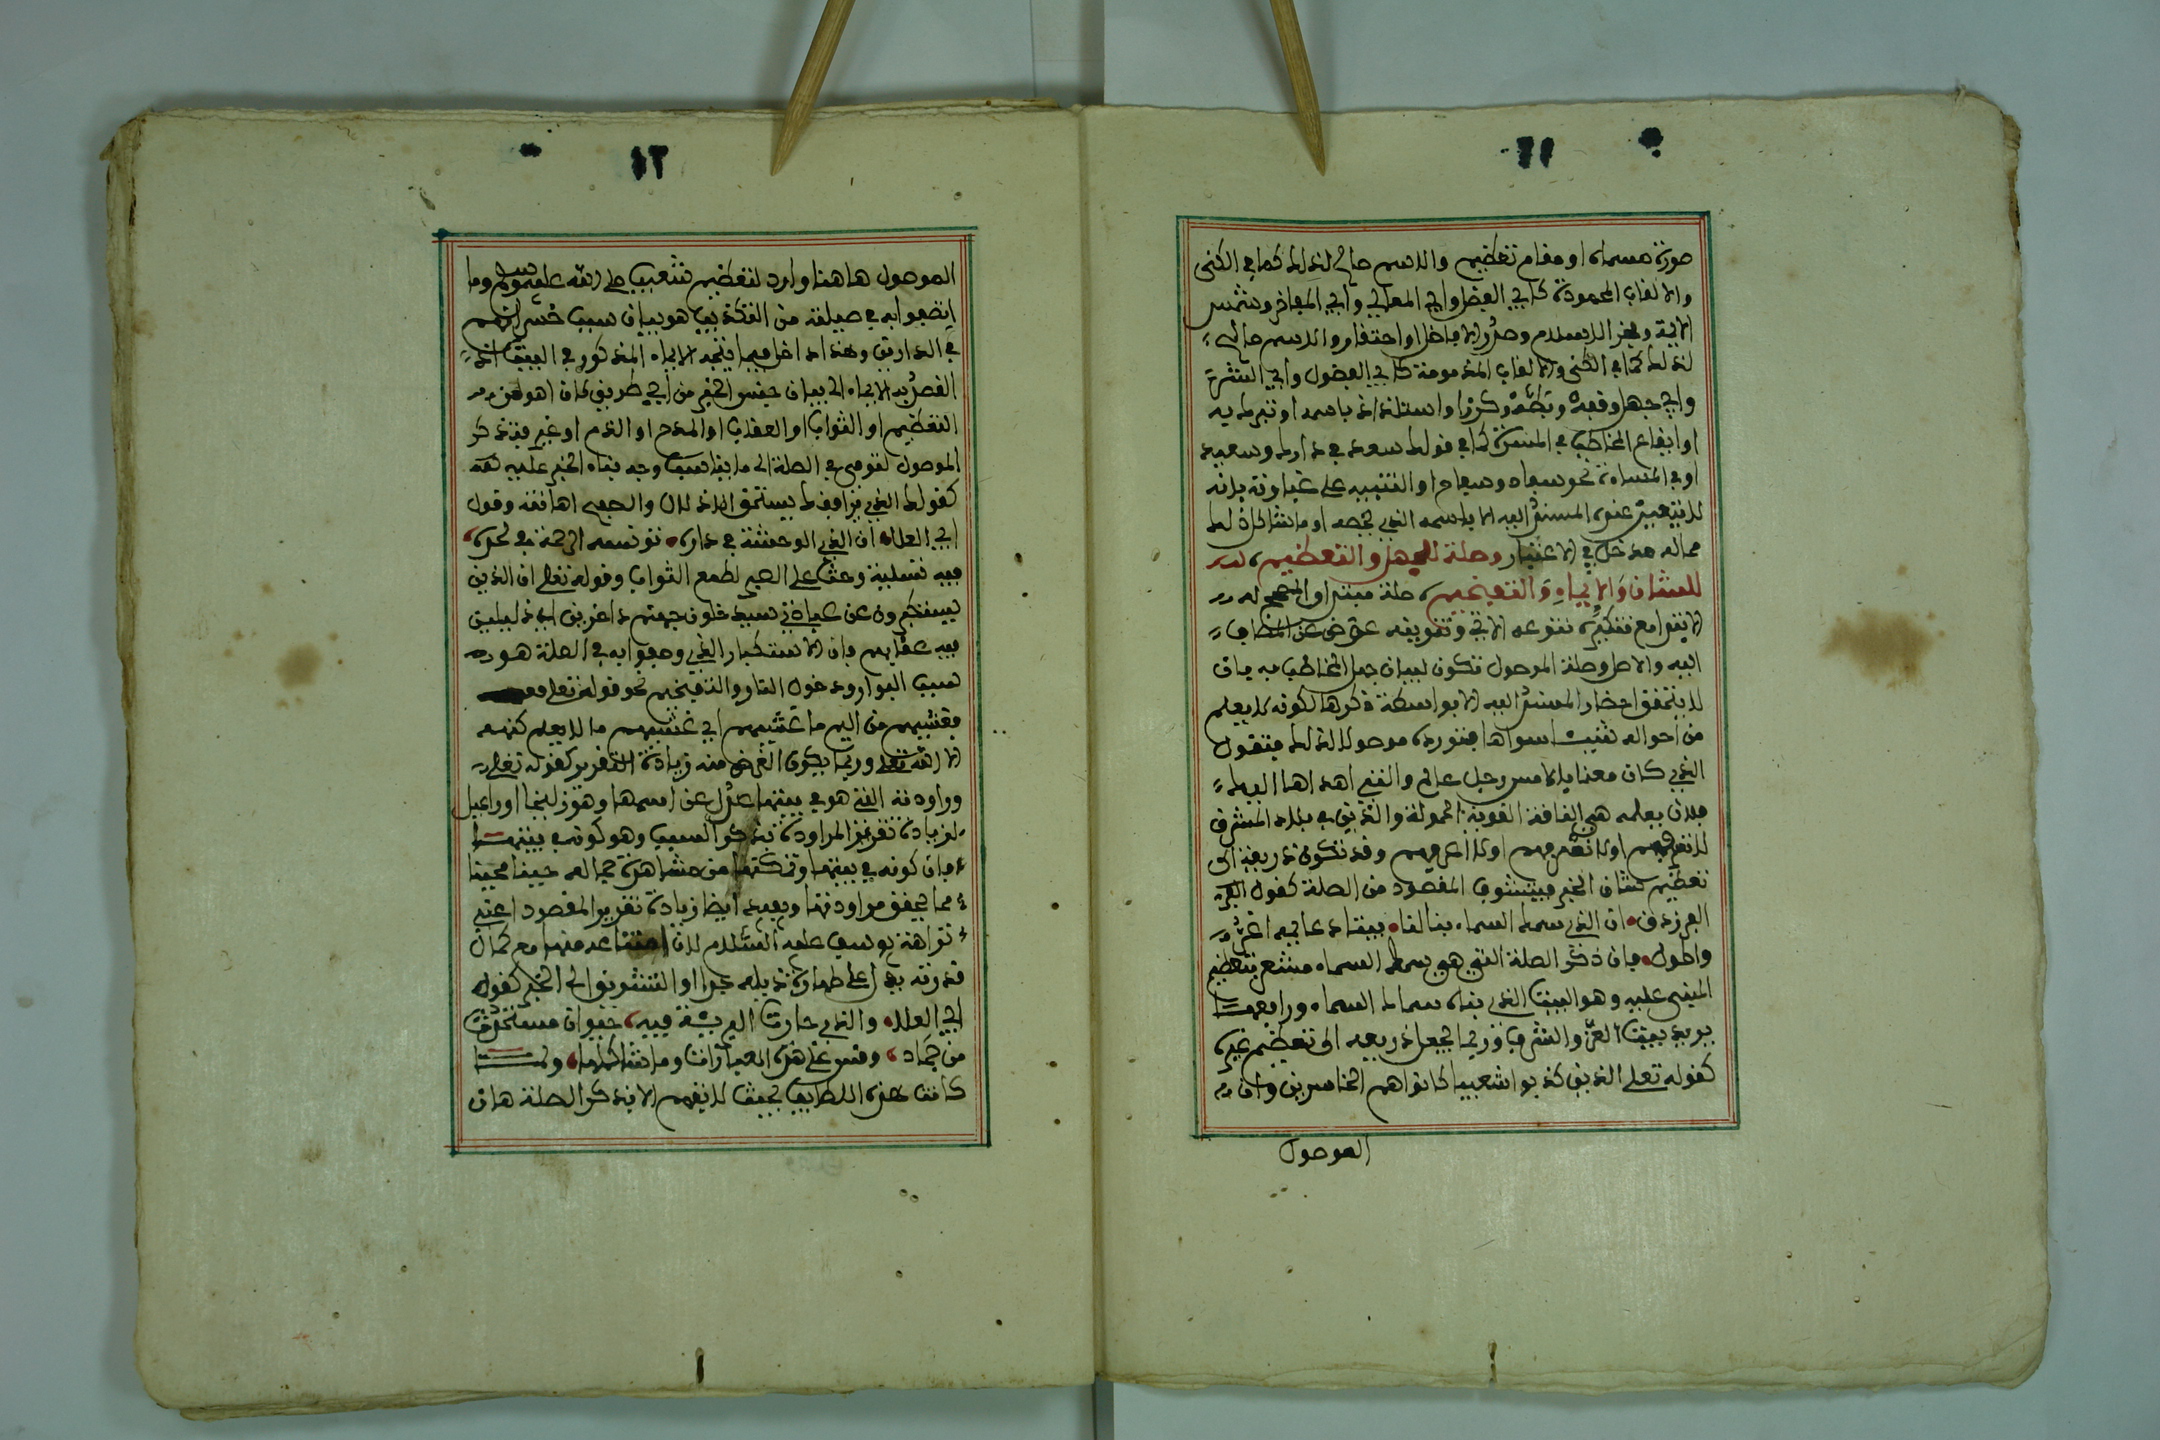 ١١
صورة مسماه او مقام تعظيم والاسم صالح لذلك كما في الكنى
والالقاب المحمودة كابي الفضل وابي المعالي وابي المفاخر وشمس
الايمة وفخر الاسلام وصدر الافاضل او احتقار والاسم صالح
لذلك كما في الكنى والالقاب المذمومة كابي الفضول وابي الشرة
وابي جهل وقفة وبطة وكرز او استلذاذ باسمه او تبرك به
او ايقاع المخاطب في المسرة كما في قولك سعد في دارك وسعيد
او في المساءة نحو سفاه وسفاح او التنبيه على غباوته بانه
لا يتعين عنده المسند اليه الا باسمه الذي يخصه او ما شاكل ذلك
مما له مدخل في الاعتبار وصلة للجهل والتعظيم
للشان والايماء والتفخيم صلة مبتدا والمصحح له
لا يقوا مع تنكيره تنوعه الاتي وتنوينه عوض عن المضاف
اليه والاصل وصلة الموصول تكون لبيان جهل المخاطب به بان
لا يتحقق احضار المسند اليه الا بواسطة ذكرها لكونه لا يعلم
من احواله شيئا سواها فتورده موصولا لذلك فتقول
الذي كان معنا بالامس رجل عالم والفتى اهداها اليك
فلان بعلمه هي الناقة القوية الحمولة والذين في بلاد المشرق
لا نعرفهم او لا تعرفهم او لا اعرفهم وقد تكون ذريعة الى
تعظيم شان الخبر فيتشوف المقصود من الصلة كقول
الفرزدق ان الذي سمك السماء بنا لنا بيتا دعائمه اعز
واطول فان ذكر الصلة التي هي سمك السماء مشعر بتعظيم
المبني عليه وهو البيت الذي بناه سماك السماء ورافعها
يريد بيت العز والشرف وربما يجعل ذريعة الى تعظيم غيره
كقوله تعلى الذين كذبوا شعيبا كانوا هم الخاسرين وان
الموصول
١٢
الموصول هاهنا وارد لتعظيم شعيب صلى الله عليه وسلم وما
اتصفوا به في صلته من التكذيب هو بيان سبب خسرانهم
في الدارين وهذا داخل فيما ينتجه الايماء المذكور في البيت اذ
القصد بالايماء الى بيان جنس الخبر من اي طريق كان اهو من
التعظيم او الثواب او العقاب او المدح او الذم او غير فتذكر
الموصول لتومي في الصلة الى ما يناسب وجه بناء الخبر عليه
كقولك الذي يرافقك يستحق الاذلال والصفع اهانته وقول
ابي العلاء ان الذي الوحشة في داره تونسه الرحمة في لحده
فيه تسلية وحث على الصبر لطمع الثواب وقوله تعلى ان الذين
يستكبرون عن عبادتي سيدخلون جهنم داخرين اي ذليلين
فيه عقابهم فان الاستكبار الذي وصفوا به في الصلة هو
سبب البوار ودخول النار والتفخيم نحو قوله تعلى
فغشيهم من اليم ما غشيهم اي غشيهم ما لا يعلم كنهه
الا الله تعلى وربما يكون الغرض منه زيادة التقرير كقوله تعلى
وراودته التي هو في بيتها عدل عن اسمها وهو زليخا او راعيل
لزيادة تقرير المراودة بذكر السبب وهو كونه في بيتها
فان كونه في بيتها وتمكنها من مشاهدة جماله حينا فحينا
مما يحقق مراودتها ويفيد ايضا زيادة تقرير المقصود اعني
نزاهة يوسف عليه السلام لان امتناعه منها مع كمال
قدرته يدل على طهارة ذيله جدا او التشويق الى الخبر كقول
ابي العلاء والذي حارت البرية فيه حيوان مستحدث
من جماد وقس على هذه العبارات وما شاكلها ولما
كانت هذه اللطايف بحيث لا يفهم الا بذكر الصلة هان